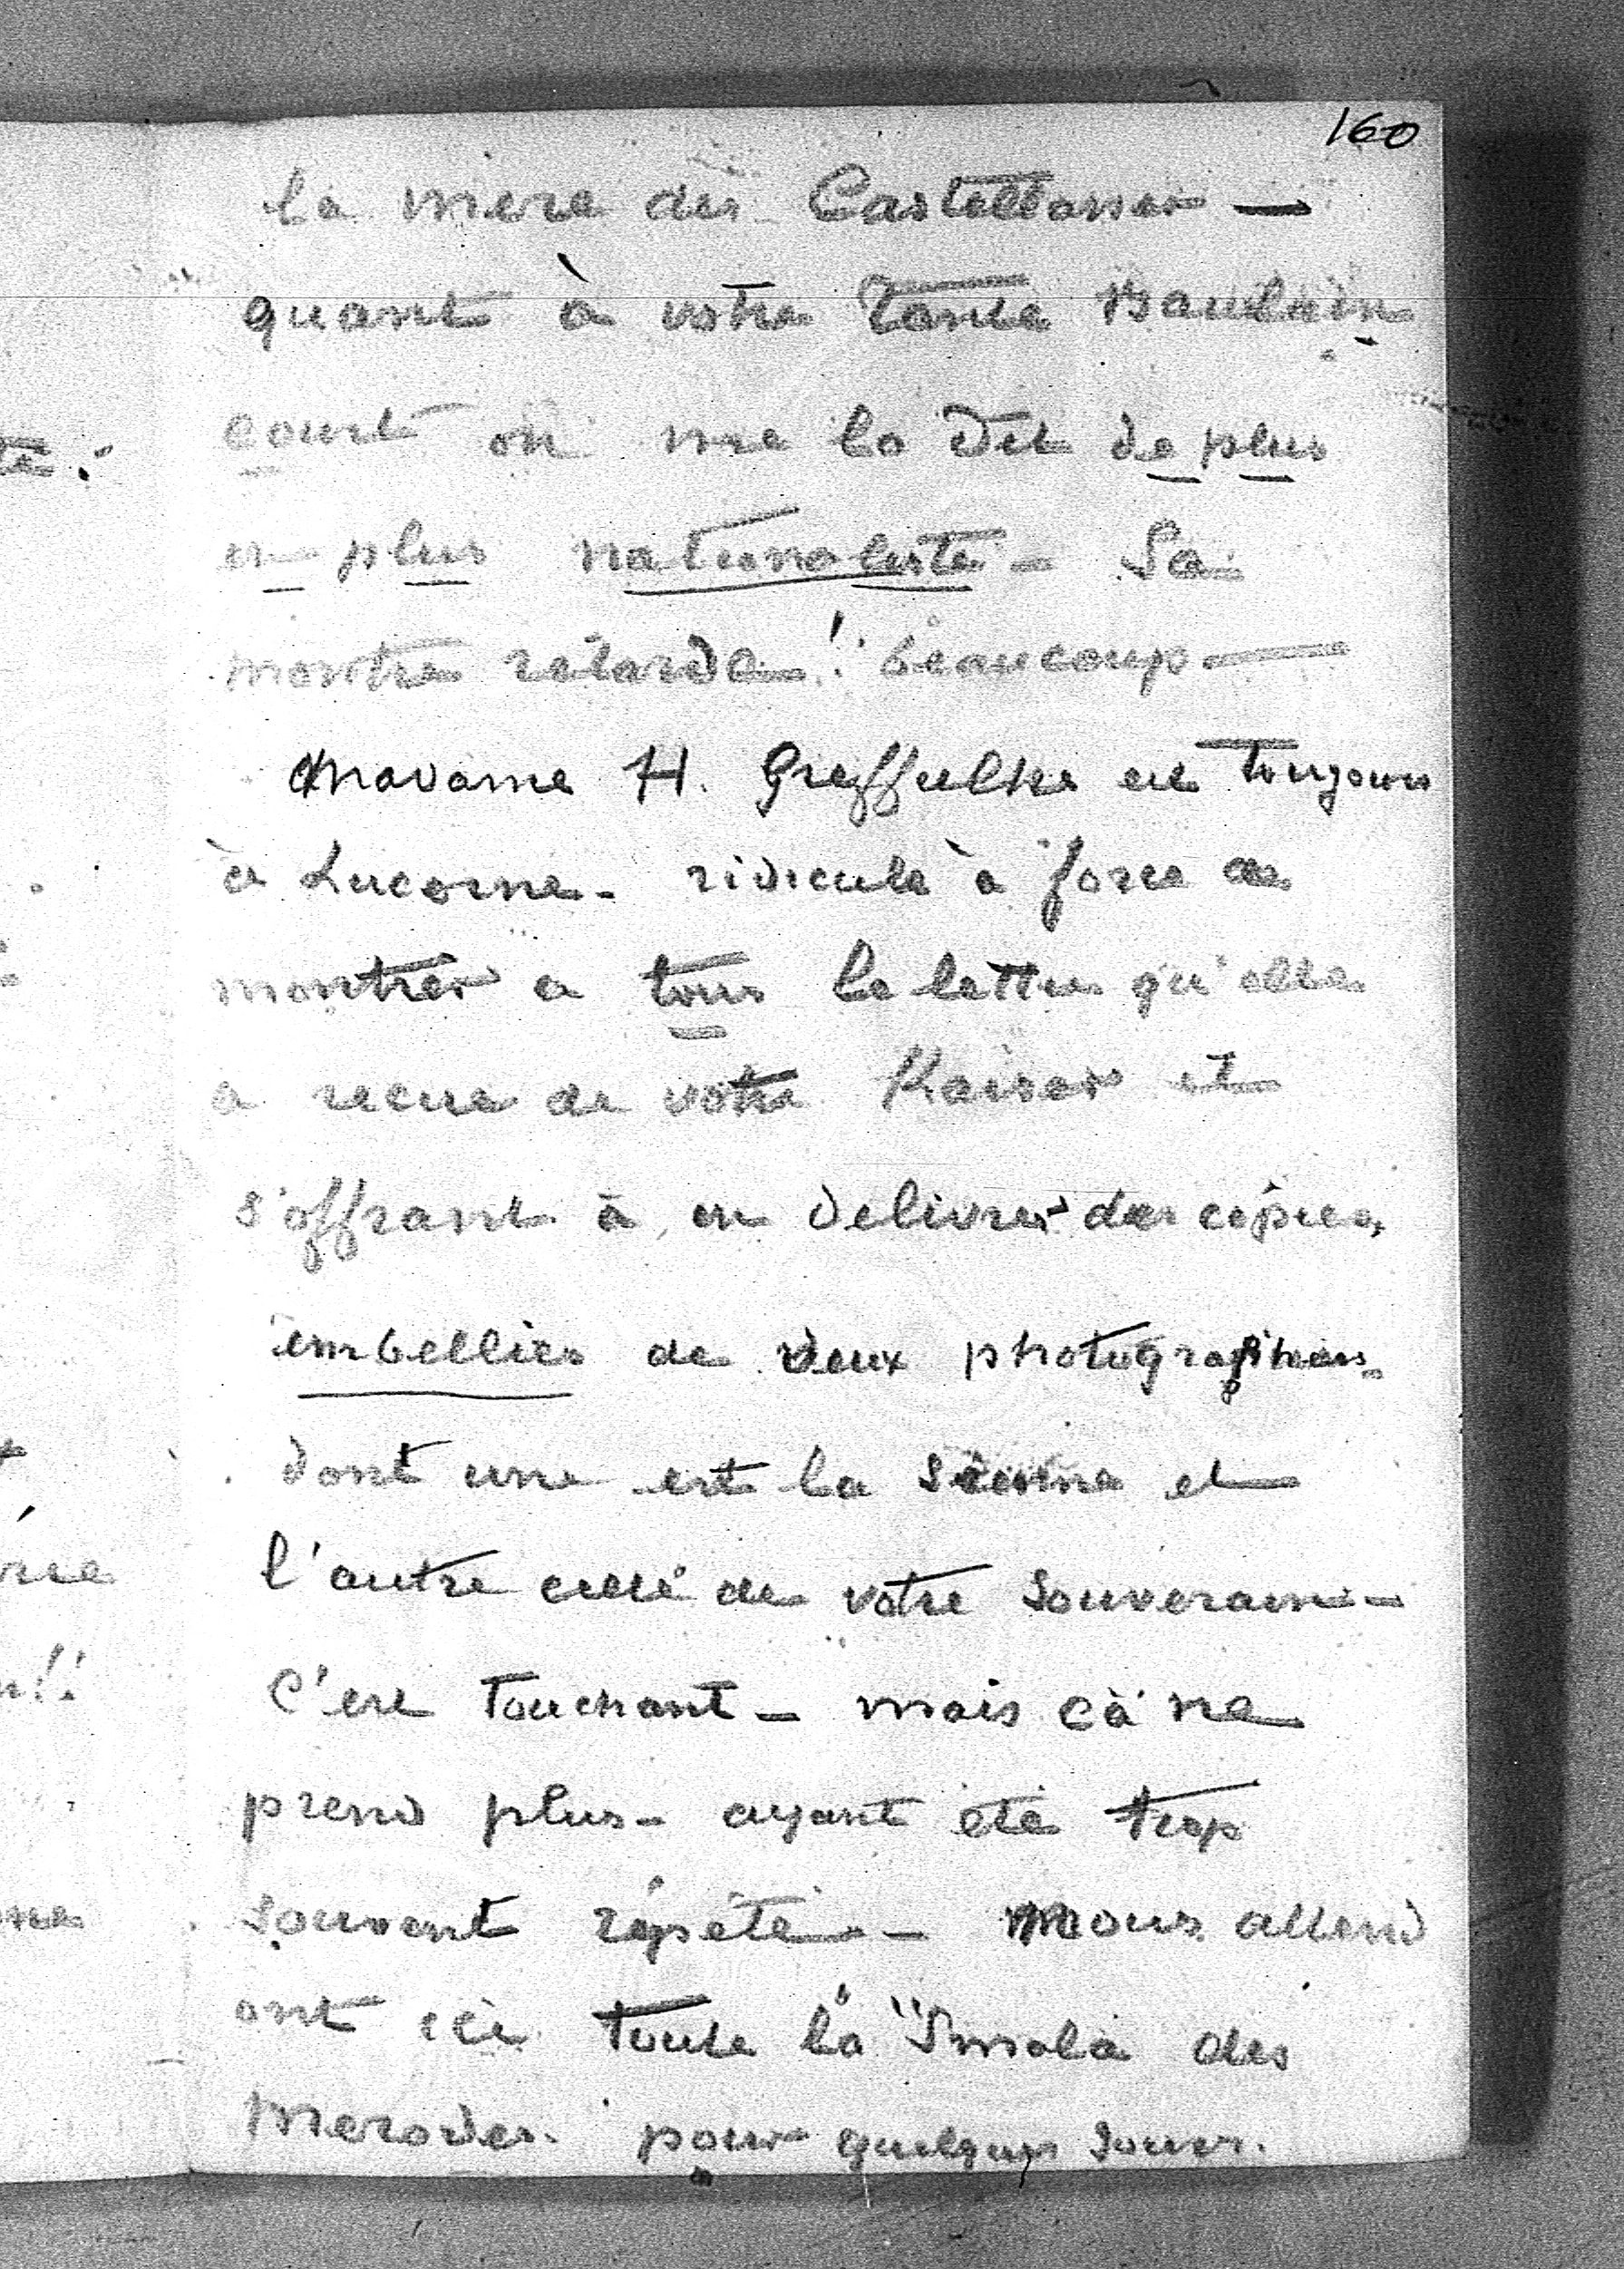 160
la mere des Castellanes —
quant à votre Tante Baulain
court on me la dit de plus
en plus naturaliste – Sa
montre retarde! beaucoup —
Madame H. Greffulhe est toujours
à Lucerne – ridicule à force de
montrer a tous la lettre qu'elle
a recue de votre Kaiser et
s'offrant à en delivrer des copies,
embellies de deux photographies
dont une est la sienne et
l'autre celle de votre Souverain –
C'est touchant – mais cà ne
prend plus – ayant été trop
souvent répété – Nous attend
ont ici toute la "Smala des
Merodes. pour quelques jours.